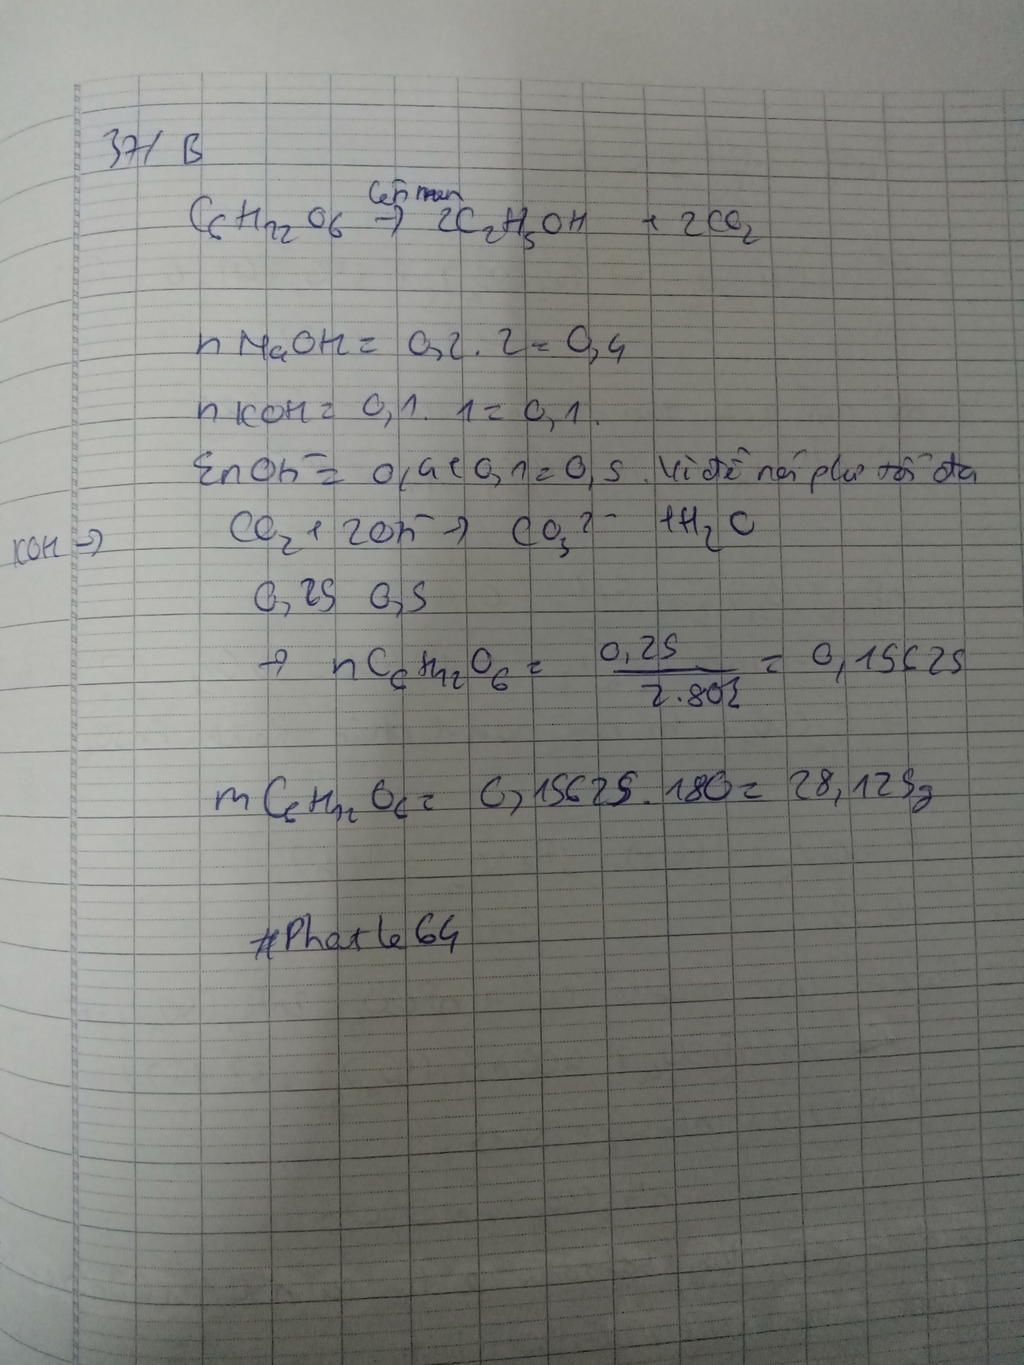 37/ B
Lên men
C6H12O6 → 2C2H5OH + 2CO2
nNaOH = 0,2 . 2 = 0,4
nKOH = 0,1 . 1 = 0,1.
ΣnOH⁻ = 0,4 + 0,1 = 0,5. Vì đề nói pư tối đa
KOH →
CO2 + 2OH⁻ → CO3²⁻ + H2O
0,25 0,5
→ nC6H12O6 = 0,25 / 2.80% = 0,15625
mC6H12O6 = 0,15625 . 180 = 28,125g
#Phatle64